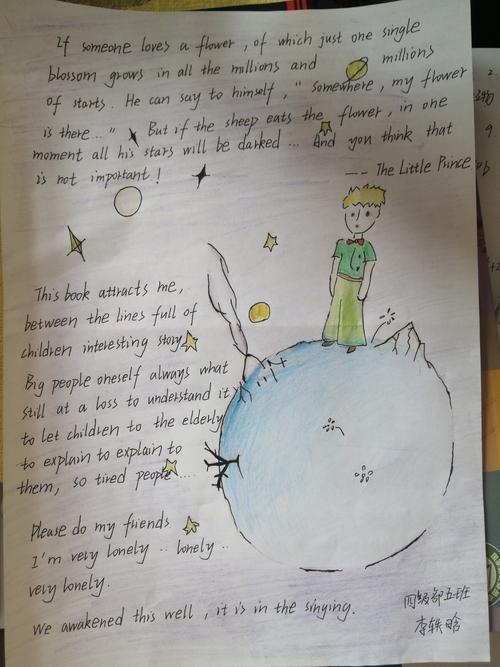 If someone loves a flower, of which just one single
blossom grows in all the millions and millions
of starts. He can say to himself, " somewhere, my flower
is there..." But if the sheep eats the flower, in one
moment all his stars will be darked... And you think that
is not important!
-- The Little Prince
This book attracts me,
between the lines full of
children interesting story
Big people oneself always what
still at a loss to understand it
to let children to the elderly
to explain to explain to
them, so tired people....
Please do my friends.
I'm very lonely.. lonely..
very lonely.
We awakened this well, it is in the singing.
四级部五班